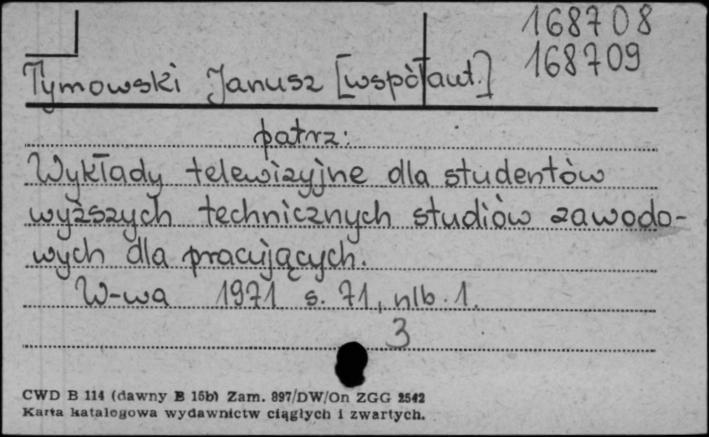 168708
168709
Tymowski Janusz [współaut.]
patrz:
Wykłady telewizyjne dla studentów
wyższych technicznych studiów zawodo-
wych dla pracujących.
W-wa 1971 s. 71, nlb. 1.
3
CWD B 114 (dawny B 15b) Zam. 897/DW/On ZGG 2542
Karta katalogowa wydawnictw ciągłych i zwartych.